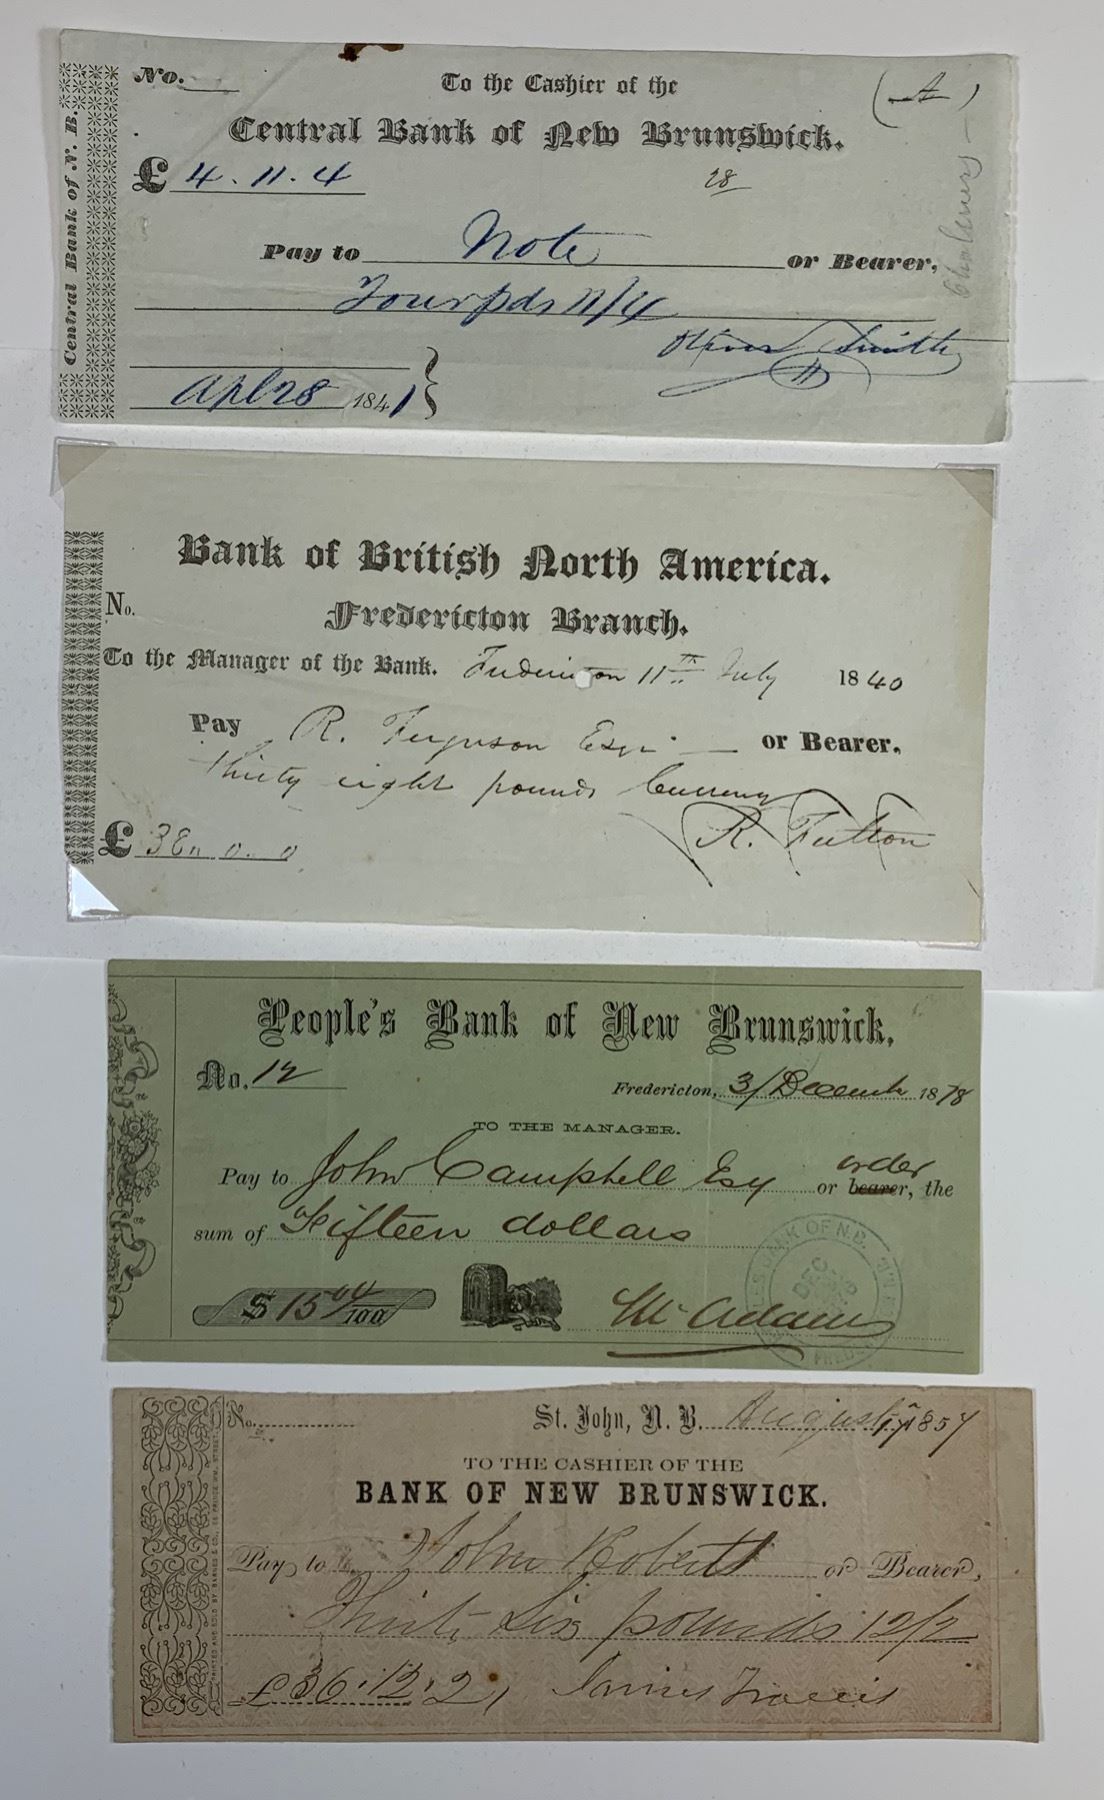 No.
To the Cashier of the
(A)
Central Bank of New Brunswick.
£ 4.11.4
28
Pay to Note or Bearer,
Four pds 11/4
Oliver Smith
Apl 28 1841
Central Bank of N. B.
Bank of British North America.
Fredericton Branch.
No.
To the Manager of the Bank. Fredericton 11th July 1840
Pay R. Ferguson Esqr or Bearer.
thirty eight pounds Currency
R. Fulton
£ 38 0. 0
People's Bank of New Brunswick,
No. 12
Fredericton, 3/ December 1878
TO THE MANAGER.
order
Pay to John Campbell Esq or bearer, the
sum of Fifteen dollars
$ 15 04/100
McAdam
No.
St. John, N. B. August 1857
TO THE CASHIER OF THE
BANK OF NEW BRUNSWICK.
Pay to John Roberts or Bearer,
Thirty Six pounds 12/2
£36.12.2
James Travis
PRINTED AND SOLD BY BARNES & CO., 58 PRINCE WM. STREET